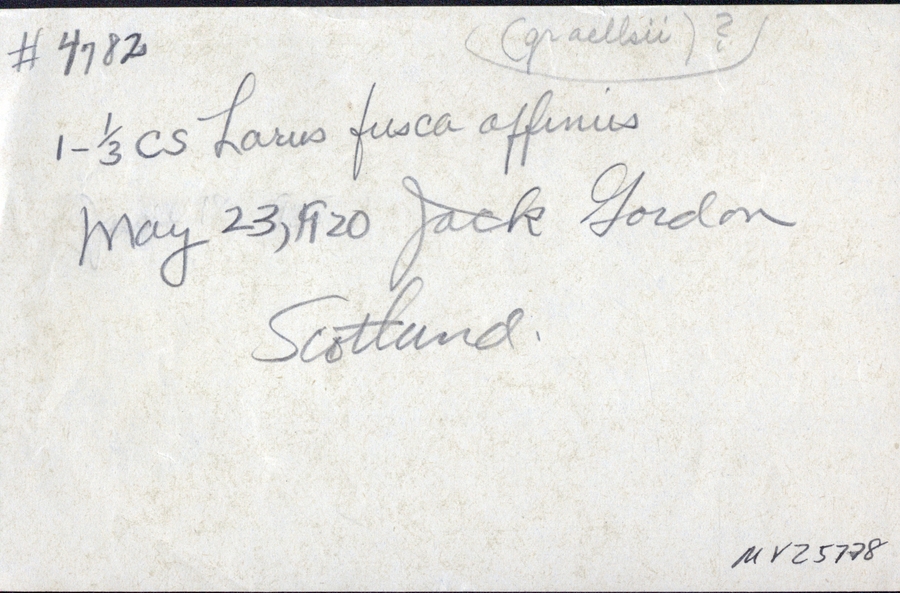 # 4782
(graellsii) ?
1-1/3 CS Larus fusca affinis
May 23, 1920 Jack Gordon
Scotland.
MVZ 5778